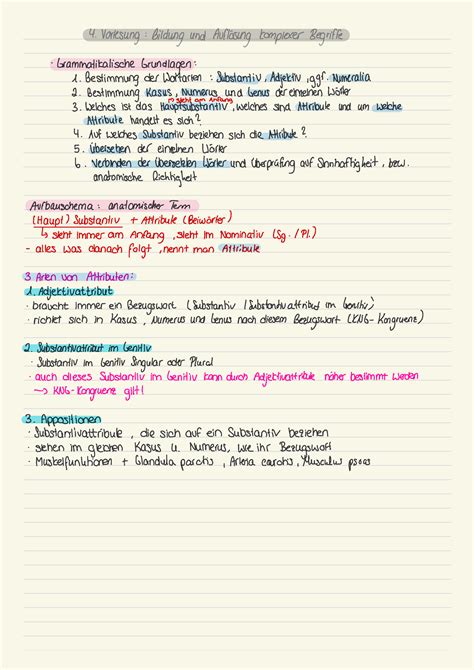 4. Vorlesung : Bildung und Auflösung komplexer Begriffe
· Grammatikalische Grundlagen :
1. Bestimmung der Wortarten : Substantiv , Adjektiv , ggf. Numeralia
2. Bestimmung Kasus , Numerus und Genus der einzelnen Wörter
→ steht am Anfang
3. Welches ist das Hauptsubstantiv , welches sind Attribute und um welche
Attribute handelt es sich ?
4. Auf welches Substantiv beziehen sich die Attribute ?
5. Übersetzen der einzelnen Wörter
6. Verbinden der übersetzten Wörter und Überprüfung auf Sinnhaftigkeit , bzw.
anatomische Richtigkeit
Aufbauschema : anatomischer Term
(Haupt) Substantiv + Attribute (Beiwörter)
↳ steht immer am Anfang , steht im Nominativ (Sg. / Pl.)
- alles was danach folgt , nennt man Attribute
3 Arten von Attributen :
1. Adjektivattribut
· braucht immer ein Bezugswort (Substantiv / Substantivattribut im Genitiv)
· richtet sich in Kasus , Numerus und Genus nach diesem Bezugswort (KNG - Kongruenz)
2. Substantivattribut im Genitiv
· Substantiv im Genitiv Singular oder Plural
· auch dieses Substantiv im Genitiv kann durch Adjektivattribute näher bestimmt werden
→ KNG-Kongruenz gilt !
3. Appositionen
· Substantivattribute , die sich auf ein Substantiv beziehen
· stehen im gleichen Kasus u. Numerus, wie ihr Bezugswort
· Muskelfunktionen + Glandula parotis , Arteria carotis , Musculus psoas